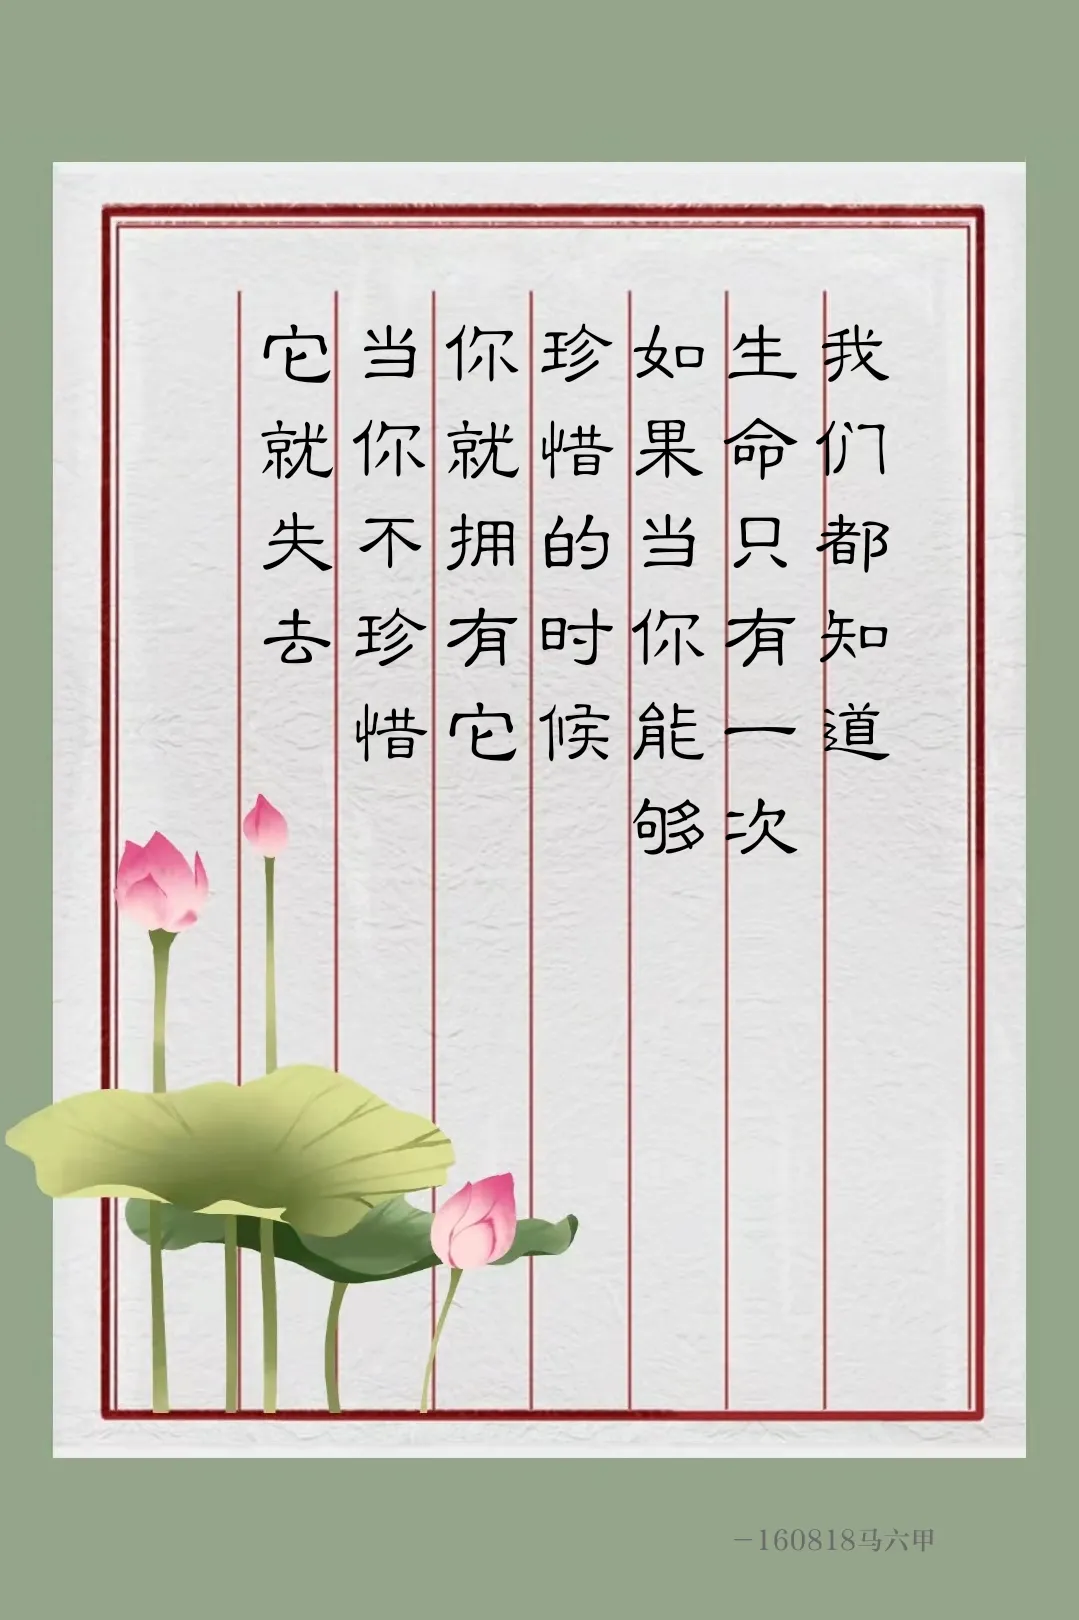 我们都知道
生命只有一次
如果当你能够
珍惜的时候
你就拥有它
当你不珍惜
它就失去
－160818马六甲